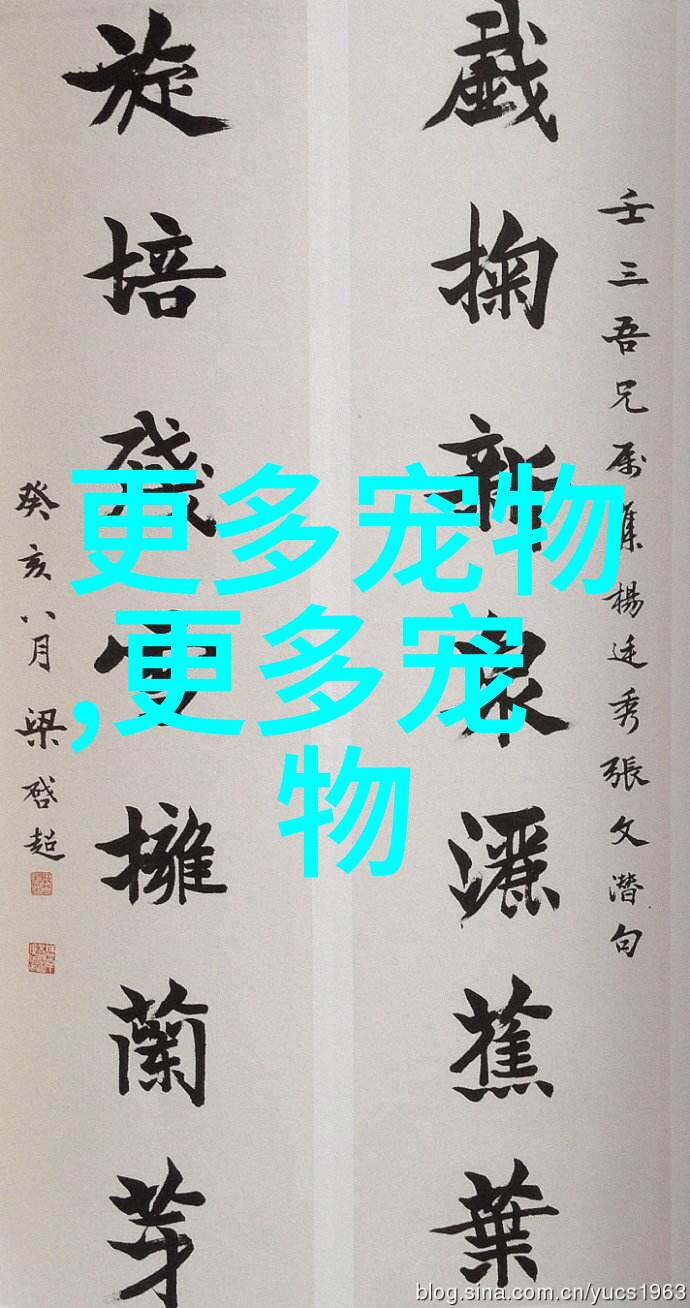 戲掬新泉灑蕉葉
壬三吾兄属集楊廷秀張文潛句
旋培殘擁蘭芽
癸亥八月梁啓超
更多宠物
,更多宠
物
blog.sina.com.cn/yucs1963